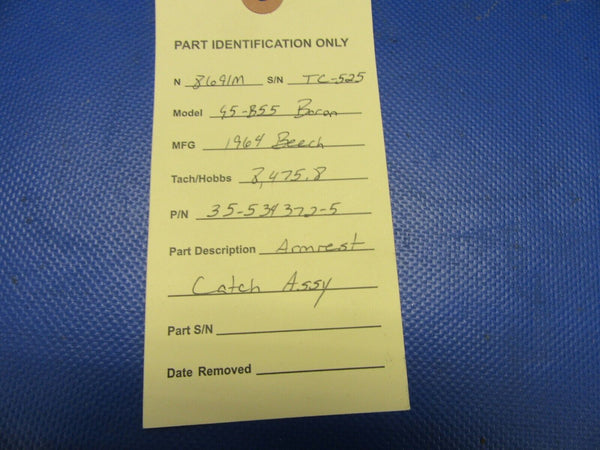 PART IDENTIFICATION ONLY
N 8691M S/N TC-525
Model 95-B55 Baron
MFG 1964 Beech
Tach/Hobbs 8,475.8
P/N 35-534372-5
Part Description Armrest
Catch Assy
Part S/N
Date Removed